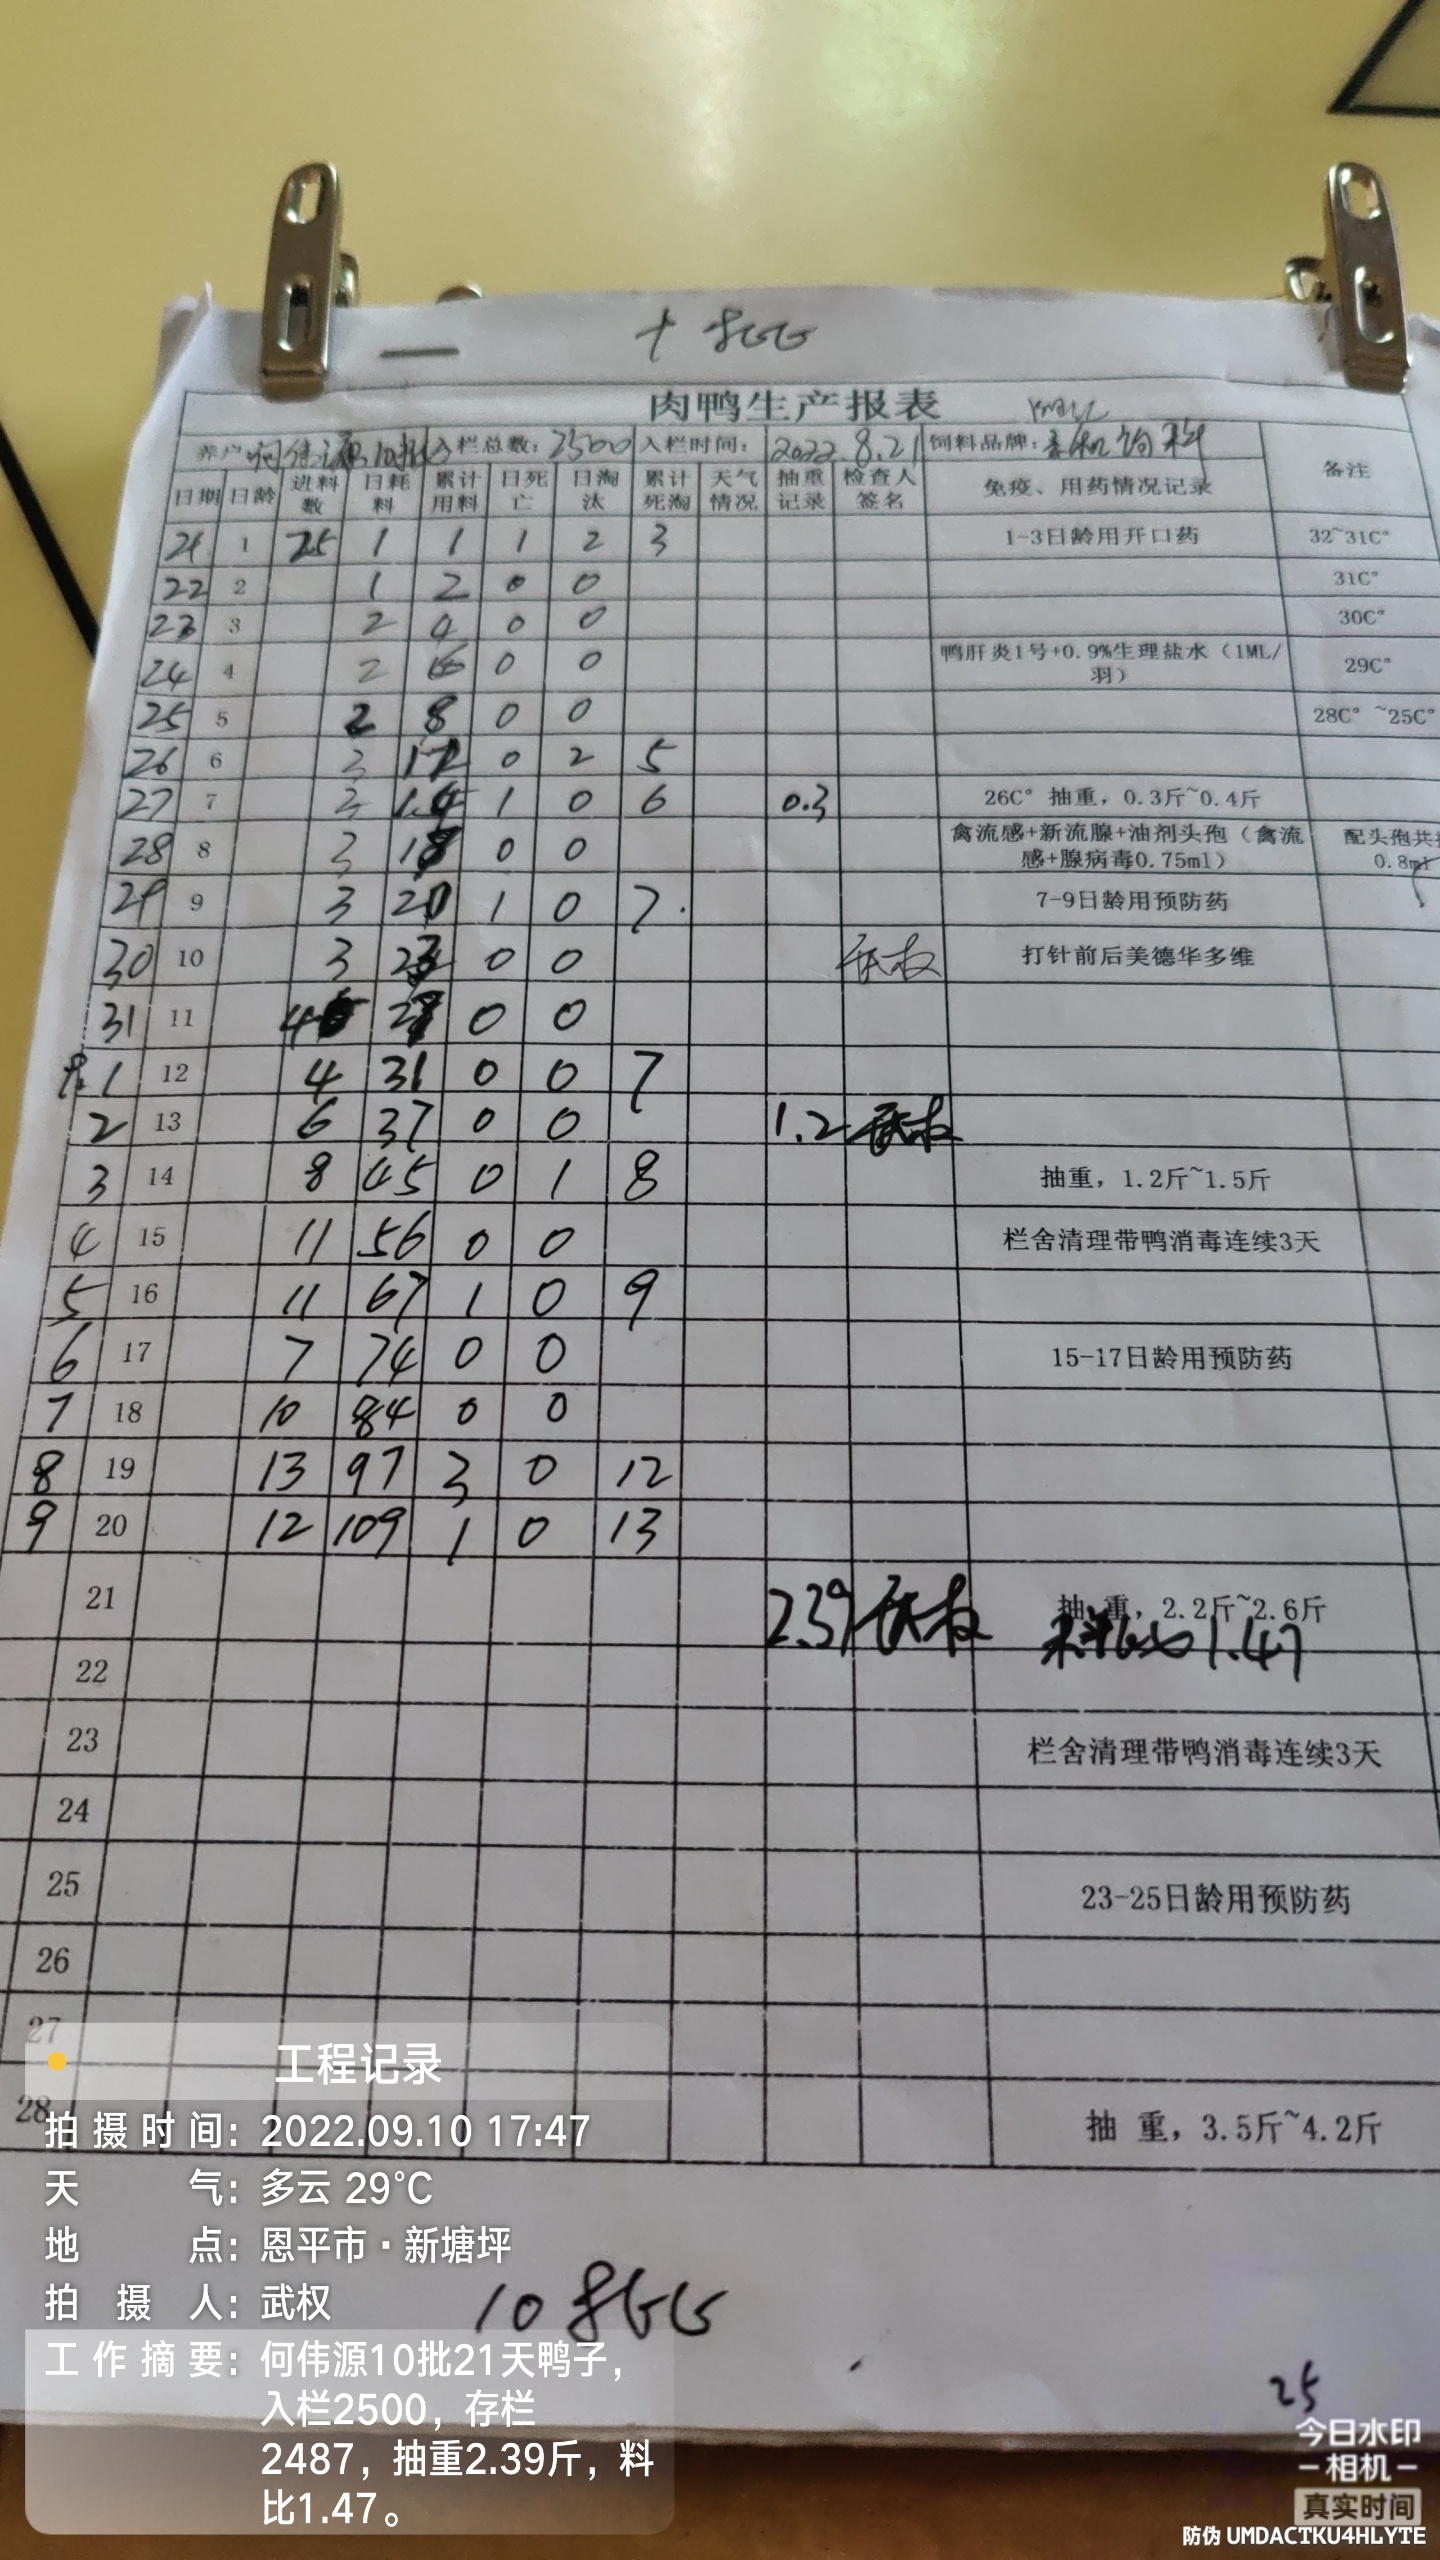 十批
肉鸭生产报表
养户 何伟源10批 入栏总数：2500 入栏时间： 2022.8.21 饲料品牌： 饲料 备注
日期 日龄 进料数 日耗料 累计用料 日死亡 日淘汰 累计死淘 天气情况 抽重记录 检查人签名 免疫、用药情况记录
21 1 25 1 1 1 2 3 1-3日龄用开口药 32~31C°
22 2 1 2 0 0 31C°
23 3 2 4 0 0 30C°
24 4 2 6 0 0 鸭肝炎1号+0.9%生理盐水（1ML/羽） 29C°
25 5 2 8 0 0 28C° ~25C°
26 6 3 0 2 5
27 7 3 14 1 0 6 0.3 26C° 抽重，0.3斤~0.4斤
28 8 3 18 0 0 禽流感+新流腺+油剂头孢（禽流感+腺病毒0.75ml） 配头孢共 0.8ml
29 9 3 20 1 0 7 7-9日龄用预防药
30 10 3 23 0 0 武权 打针前后美德华多维
31 11 4 0 0
9.1 12 4 31 0 0 7
2 13 6 37 0 0 1.2 武权
3 14 8 45 0 1 8 抽重，1.2斤~1.5斤
4 15 11 56 0 0 栏舍清理带鸭消毒连续3天
5 16 11 67 1 0 9
6 17 7 74 0 0 15-17日龄用预防药
7 18 10 84 0 0
8 19 13 97 3 0 12
9 20 12 109 1 0 13
21 2.39 武权 抽 重，2.2斤~2.6斤
22 料比1.47
23 栏舍清理带鸭消毒连续3天
24
25 23-25日龄用预防药
26
27
28 抽 重，3.5斤~4.2斤
工程记录
拍摄时间：2022.09.10 17:47
天气：多云 29℃
地点：恩平市·新塘坪
拍摄人：武权
10批
工作摘要：何伟源10批21天鸭子，
入栏2500，存栏
2487，抽重2.39斤，料
比1.47。
25
今日水印
相机
真实时间
防伪 UMDACTKU4HLYTE